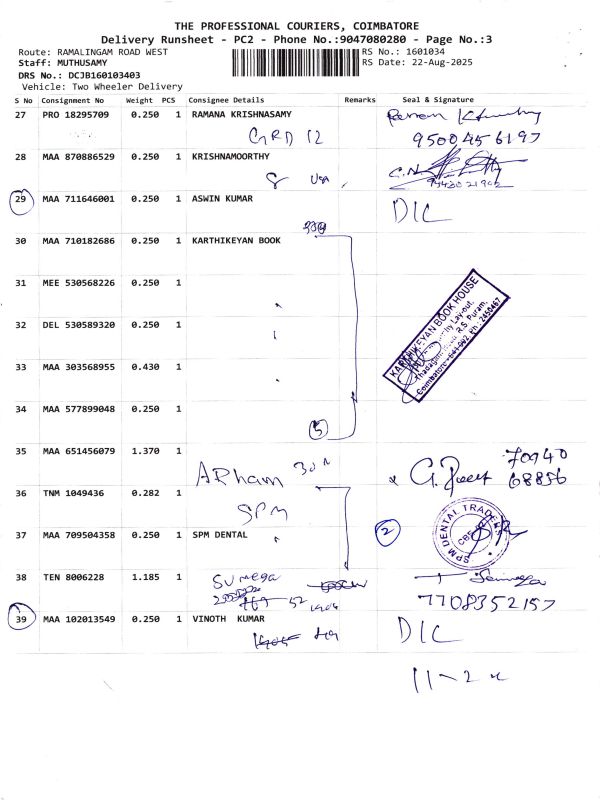 THE PROFESSIONAL COURIERS, COIMBATORE
Delivery Runsheet - PC2 - Phone No.:9047080280 - Page No.:3
Route: RAMALINGAM ROAD WEST
RS No.: 1601034
Staff: MUTHUSAMY
RS Date: 22-Aug-2025
DRS No.: DCJB160103403
Vehicle: Two Wheeler Delivery
S No Consignment No Weight PCS Consignee Details Remarks Seal & Signature
27 PRO 18295709 0.250 1 RAMANA KRISHNASAMY
GRD 12 9500456197
28 MAA 870886529 0.250 1 KRISHNAMOORTHY
29 MAA 711646001 0.250 1 ASWIN KUMAR D/C
30 MAA 710182686 0.250 1 KARTHIKEYAN BOOK
31 MEE 530568226 0.250 1
32 DEL 530589320 0.250 1
33 MAA 303568955 0.430 1
KARTHIKEYAN BOOK HOUSE
R.S. Puram,
34 MAA 577899048 0.250 1
5
35 MAA 651456079 1.370 1
ARham 70940
68856
36 TNM 1049436 0.282 1
SPM
37 MAA 709504358 0.250 1 SPM DENTAL 2
SPM DENTAL TRADERS
CBE
38 TEN 8006228 1.185 1 Sumega
52 7708352157
39 MAA 102013549 0.250 1 VINOTH KUMAR D/C